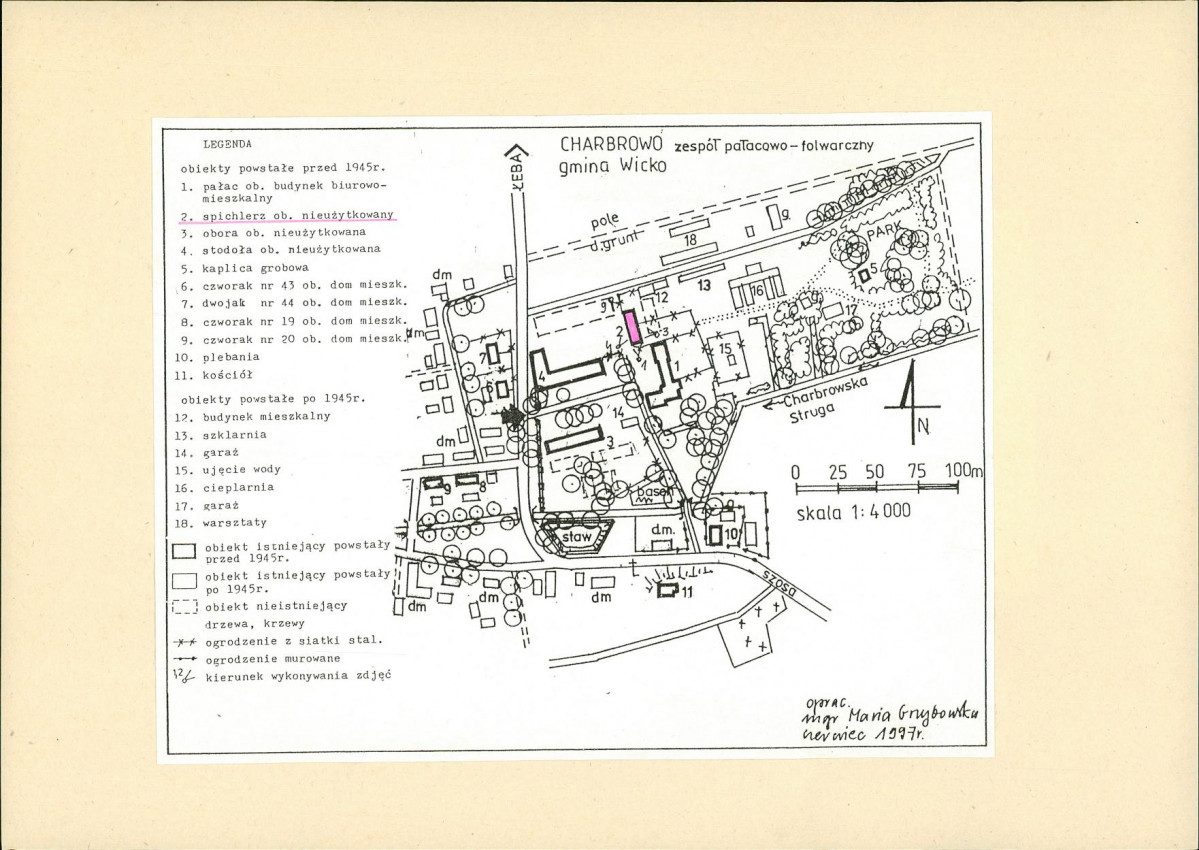 LEGENDA
obiekty powstałe przed 1945r.
1. pałac ob. budynek biurowo-
mieszkalny
2. spichlerz ob. nieużytkowany
3. obora ob. nieużytkowana
4. stodoła ob. nieużytkowana
5. kaplica grobowa
6. czworak nr 43 ob. dom mieszk.
7. dwojak nr 44 ob. dom mieszk.
8. czworak nr 19 ob. dom mieszk.
9. czworak nr 20 ob. dom mieszk.
10. plebania
11. kościół
obiekty powstałe po 1945r.
12. budynek mieszkalny
13. szklarnia
14. garaż
15. ujęcie wody
16. cieplarnia
17. garaż
18. warsztaty
obiekt istniejący powstały
przed 1945r.
obiekt istniejący powstały
po 1945r.
obiekt nieistniejący
drzewa, krzewy
ogrodzenie z siatki stal.
ogrodzenie murowane
12 kierunek wykonywania zdjęć
CHARBROWO zespół pałacowo-folwarczny
gmina Wicko
ŁEBA
pole
d.grunt
18
g.
PARK
5
dm
13
16
12
g
17
g.
2
3
1
1
15
dm
7
4
6
Charbrowska
Struga
N
14
3
dm
9
8
basen
0 25 50 75 100m
skala 1:4000
staw
d.m.
g
10
11
dm
dm
dm
SZOSA
oprac.
mgr Maria Grzybowska
czerwiec 1997r.